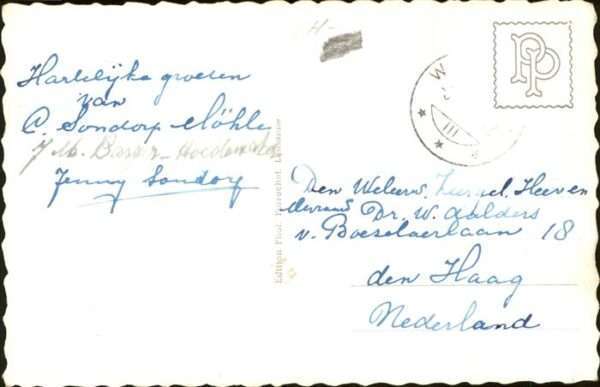 Hartelijke groeten
van
C. Sondorp Möhle
Jenny Sondorp
Den Weleerw. Zeergel. Heer en
Mevrouw Dr. W. Aalders
v. Boeselaerlaan 18
den Haag
Nederland
Edition Phot.
H-
W
III
PP